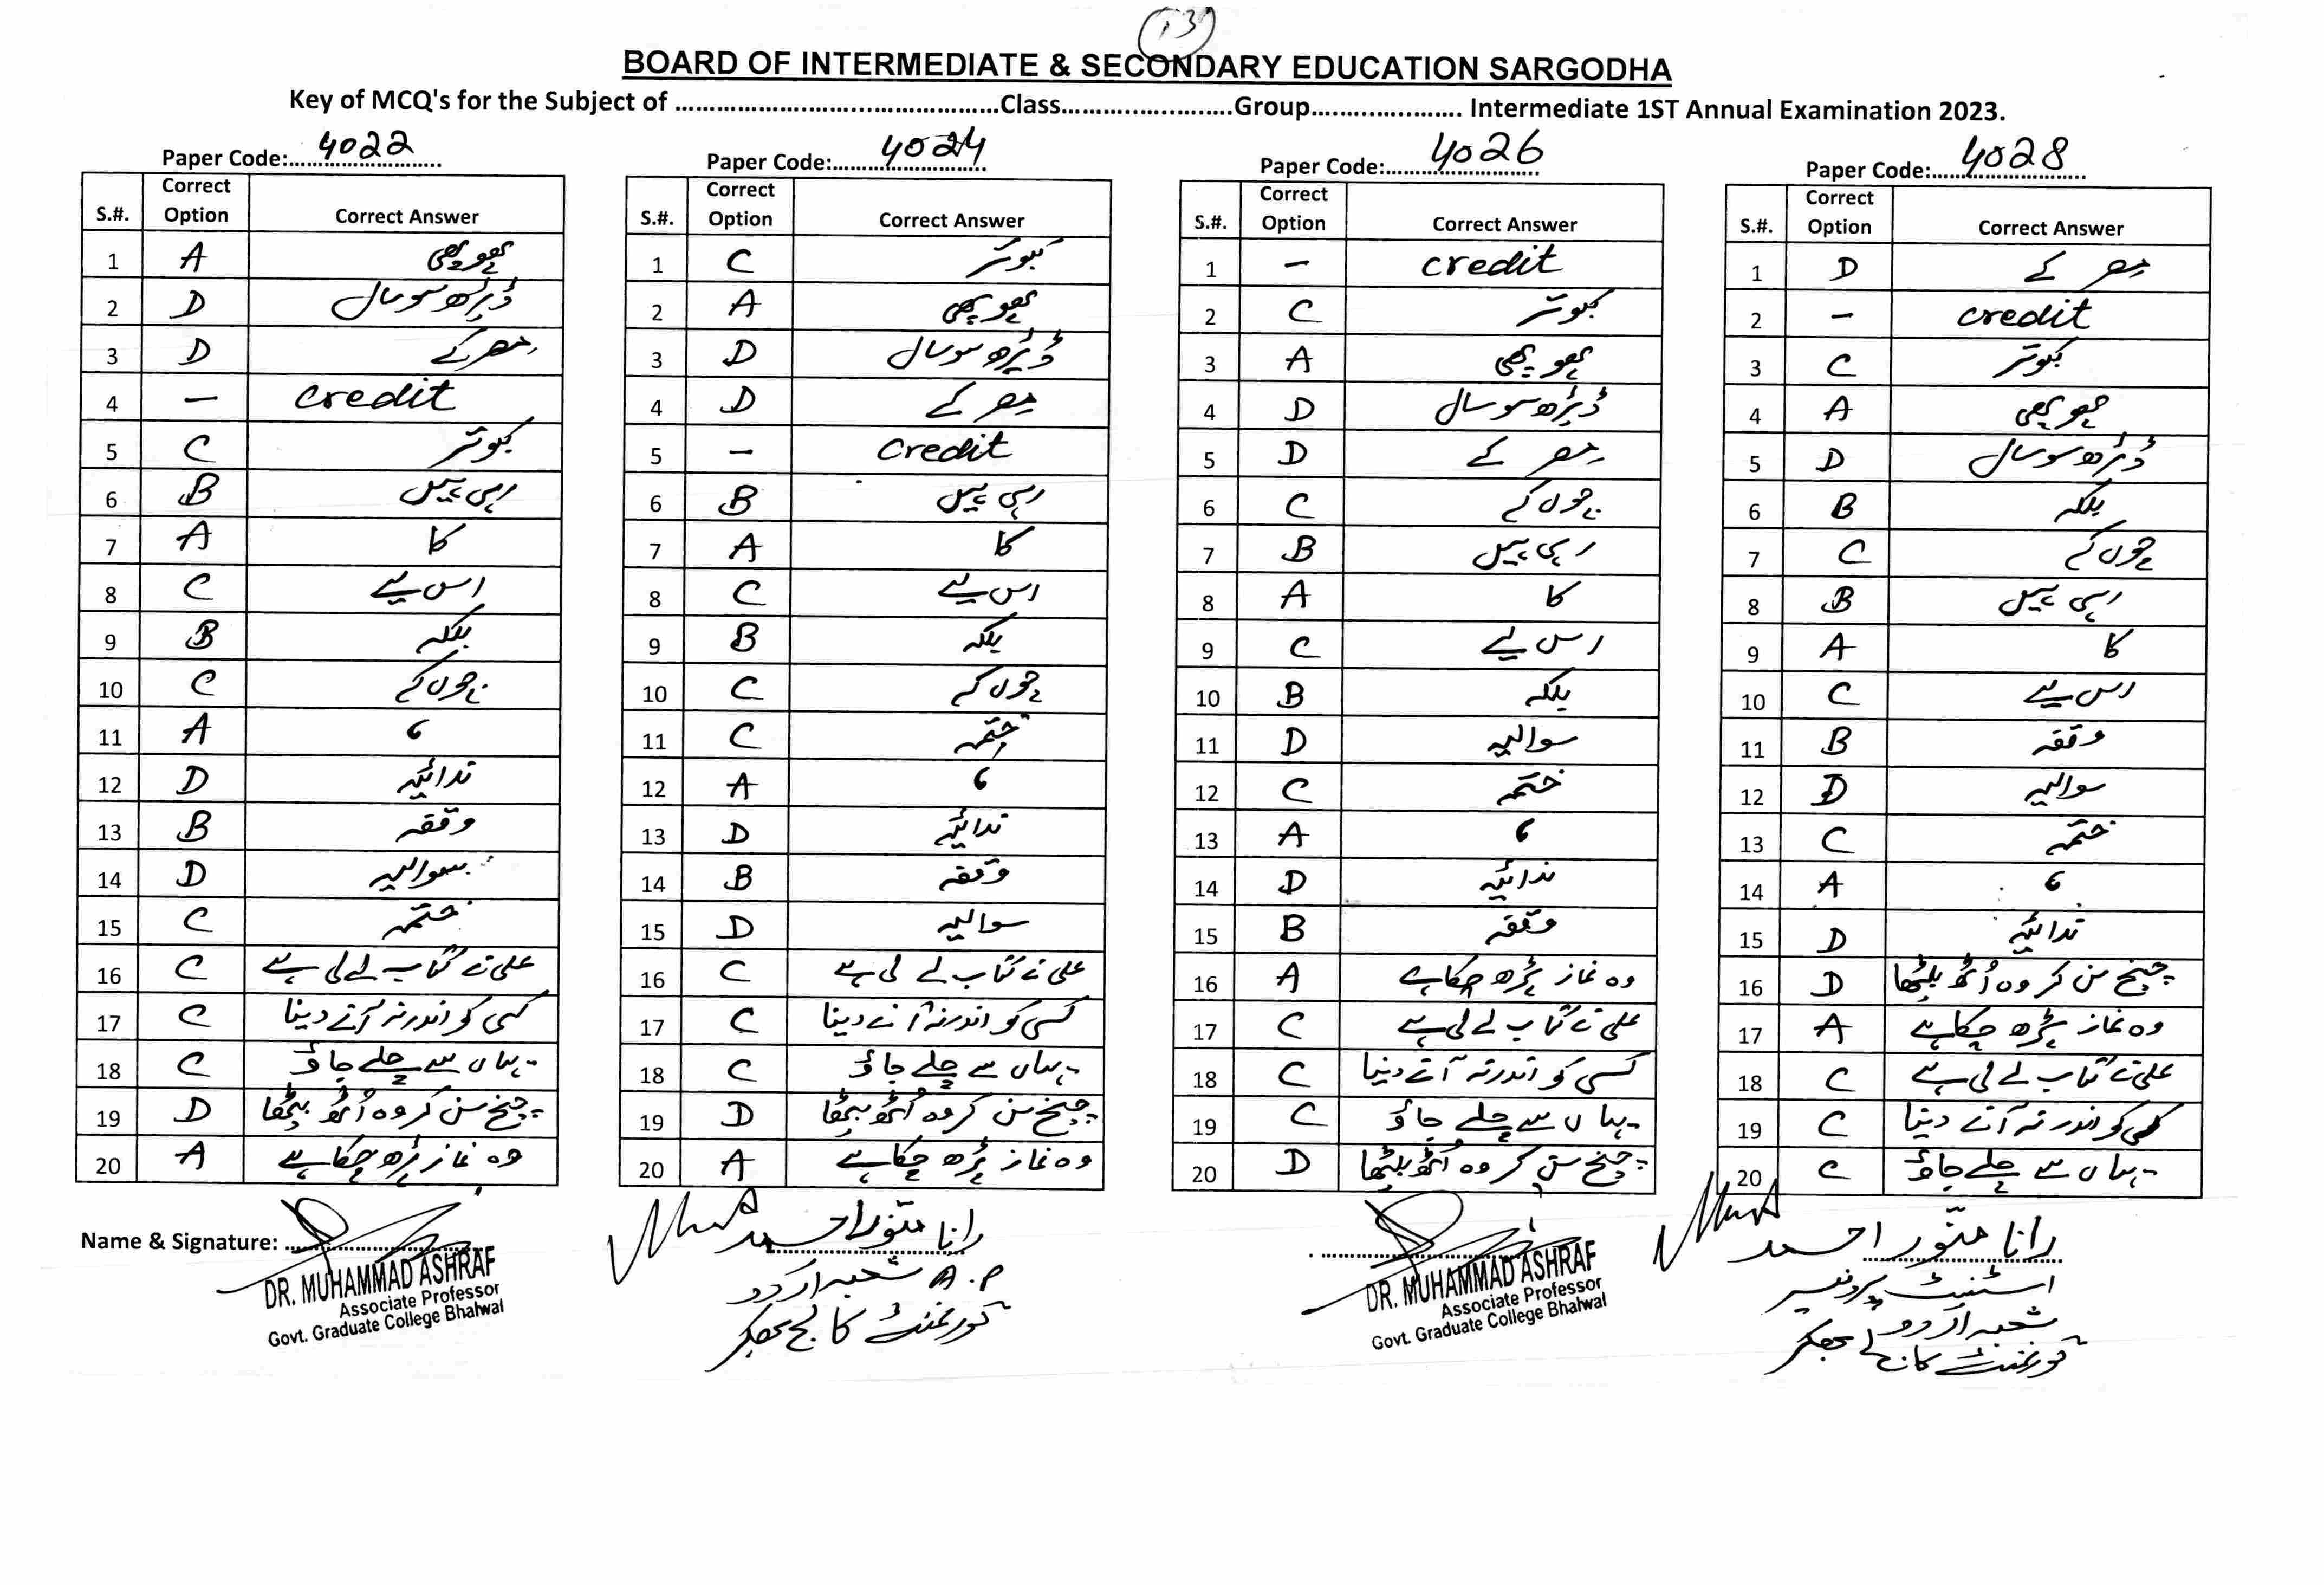 13
BOARD OF INTERMEDIATE & SECONDARY EDUCATION SARGODHA
Key of MCQ's for the Subject of ............................................Class........................Group..................... Intermediate 1ST Annual Examination 2023.
Paper Code: 4022
S.#. Correct Option Correct Answer
1 A پھوپھی
2 D ڈیڑھ سو سال
3 D مصر کے
4 – credit
5 C کبوتر
6 B رہی ہیں
7 A کا
8 C اس لیے
9 B بلکہ
10 C جوں کے
11 A ،
12 D ندائیہ
13 B وقفہ
14 D سوالیہ
15 C ختمہ
16 C علی نے کتاب لے لی ہے
17 C کسی کو اندر نہ آنے دینا
18 C یہاں سے چلے جاؤ
19 D چیخ سن کر وہ اُٹھ بیٹھا
20 A وہ نماز پڑھ چکا ہے
Paper Code: 4024
S.#. Correct Option Correct Answer
1 C کبوتر
2 A پھوپھی
3 D ڈیڑھ سو سال
4 D مصر کے
5 – Credit
6 B رہی ہیں
7 A کا
8 C اس لیے
9 B بلکہ
10 C جوں کے
11 C ختمہ
12 A ،
13 D ندائیہ
14 B وقفہ
15 D سوالیہ
16 C علی نے کتاب لے لی ہے
17 C کسی کو اندر نہ آنے دینا
18 C یہاں سے چلے جاؤ
19 D چیخ سن کر وہ اُٹھ بیٹھا
20 A وہ نماز پڑھ چکا ہے
Paper Code: 4026
S.#. Correct Option Correct Answer
1 – credit
2 C کبوتر
3 A پھوپھی
4 D ڈیڑھ سو سال
5 D مصر کے
6 C جوں کے
7 B رہی ہیں
8 A کا
9 C اس لیے
10 B بلکہ
11 D سوالیہ
12 C ختمہ
13 A ،
14 D ندائیہ
15 B وقفہ
16 A وہ نماز پڑھ چکا ہے
17 C علی نے کتاب لے لی ہے
18 C کسی کو اندر نہ آنے دینا
19 C یہاں سے چلے جاؤ
20 D چیخ سن کر وہ اُٹھ بیٹھا
Paper Code: 4028
S.#. Correct Option Correct Answer
1 D مصر کے
2 – credit
3 C کبوتر
4 A پھوپھی
5 D ڈیڑھ سو سال
6 B بلکہ
7 C جوں کے
8 B رہی ہیں
9 A کا
10 C اس لیے
11 B وقفہ
12 D سوالیہ
13 C ختمہ
14 A ،
15 D ندائیہ
16 D چیخ سن کر وہ اُٹھ بیٹھا
17 A وہ نماز پڑھ چکا ہے
18 C علی نے کتاب لے لی ہے
19 C کسی کو اندر نہ آنے دینا
20 C یہاں سے چلے جاؤ
Name & Signature:
DR. MUHAMMAD ASHRAF
Associate Professor
Govt. Graduate College Bhalwal
رانا منّور احمد
A.P شعبہ اردو
گورنمنٹ کالج بھکر
DR. MUHAMMAD ASHRAF
Associate Professor
Govt. Graduate College Bhalwal
رانا منّور احمد
اسٹنٹ پروفیسر
شعبہ اردو
گورنمنٹ کالج بھکر